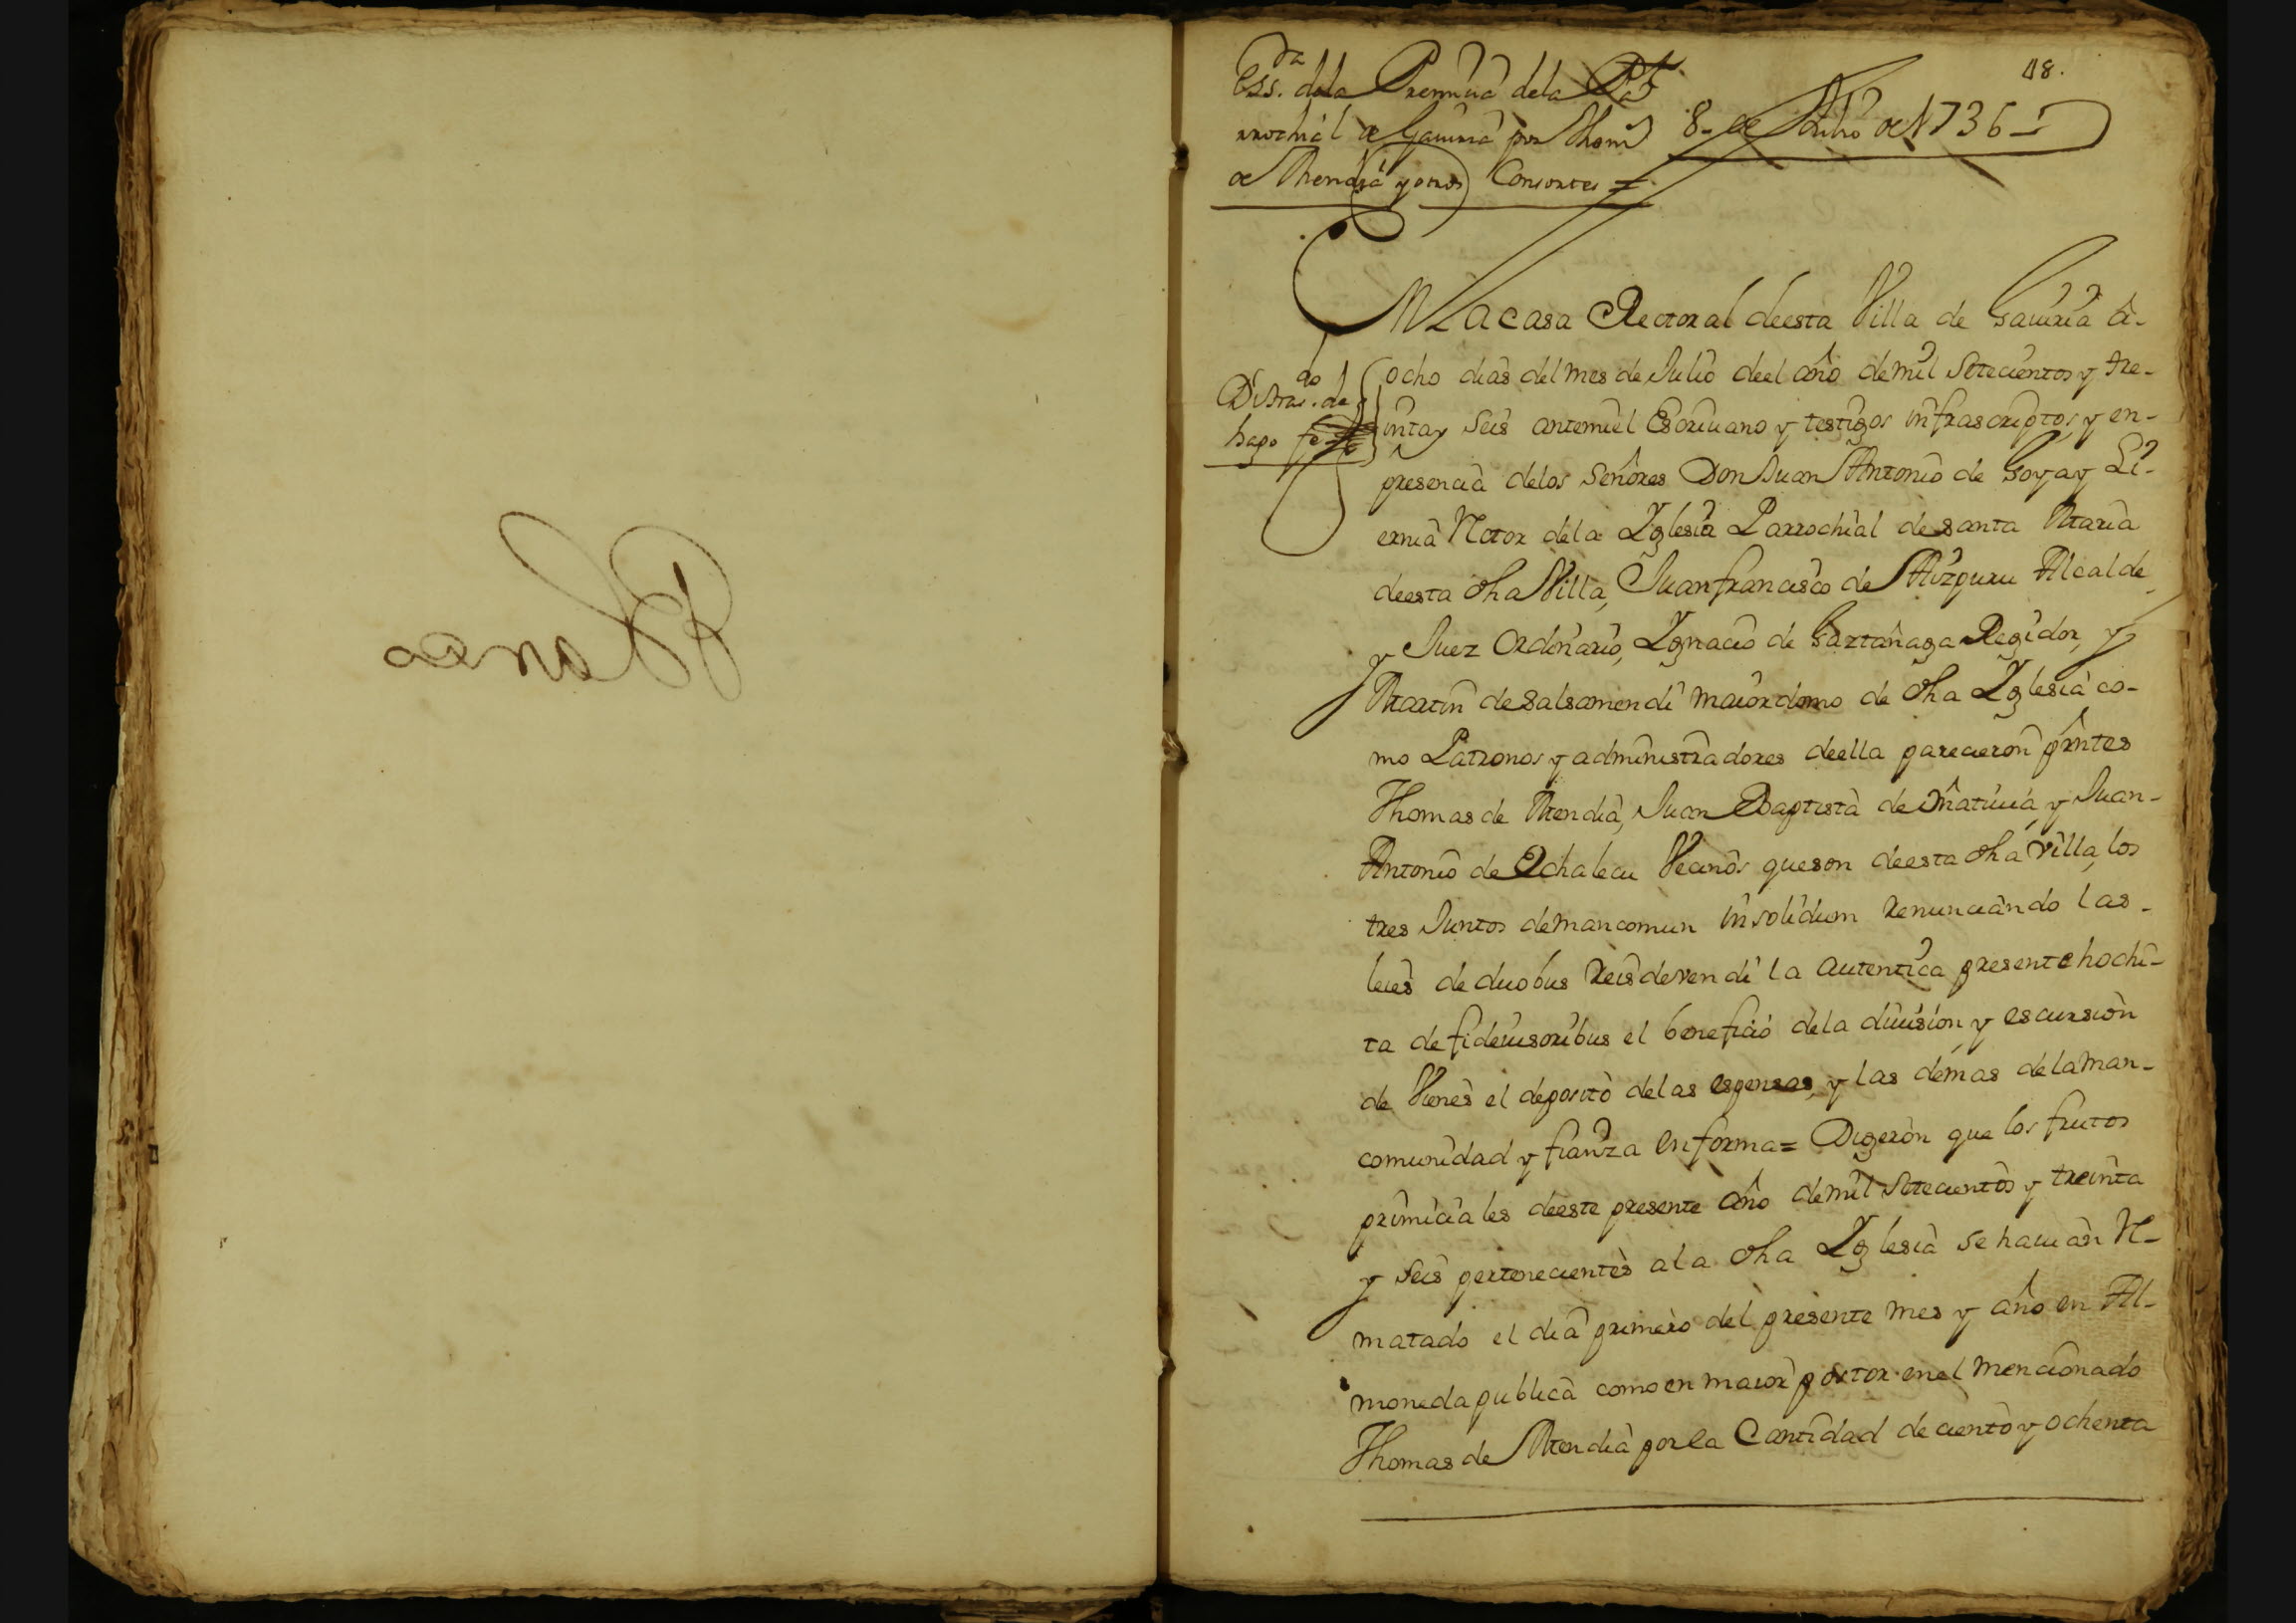 Blanca
118.
Ess.ra dela Premiçia dela Pa
rrochial de Gaviria por Thom.s
de Mendia y otros Consortes =
8. de Julio de 1736
EN La casa Rectoral deesta Villa de Gaviria â-
ocho dias del mes de Julio deel año demil Setecientos y tre-
inta y Seis antemi el Escriuano y testigos infrascriptos, y en-
presencia delos Señores Don Juan Antonio de Goya y Li-
ernia Retor dela Yglesia Parrochial de santa Maria
deesta dha Villa, Juan francisco de Aizpuru Alcalde
y Juez Ordinario, Ygnacio de Gaztañaga Regidor, y
Martin de salsamendi maiordomo de dha Yglesia co-
mo Patronos y administradores deella parecieron p̃ntes
Thomas de Mendia, Juan Baptista de Oñatiuia, y Juan-
Antonio de Echalecu Vecinos queson deesta dha villa, los
tres Juntos demancomun insolidum Renunciando las-
leies de duobus Reis devendi la autentica presente hochi-
ta de fideiusoribus el beneficio dela diuision y escursion
de Vienes el deposito delas espensas, y las demas dela man-
comunidad y fianza en forma = Digeron que los frutos
primiciales deeste presente año demil Setecientos y treinta
y Seis pertenecientes ala dha Yglesia se hauian Re-
matado el dia primero del presente mes y año en Al-
moneda publica como en maior postor enel mencionado
Thomas de Mendia por la Cantidad de ciento y ochenta
Distras.do
hago fe